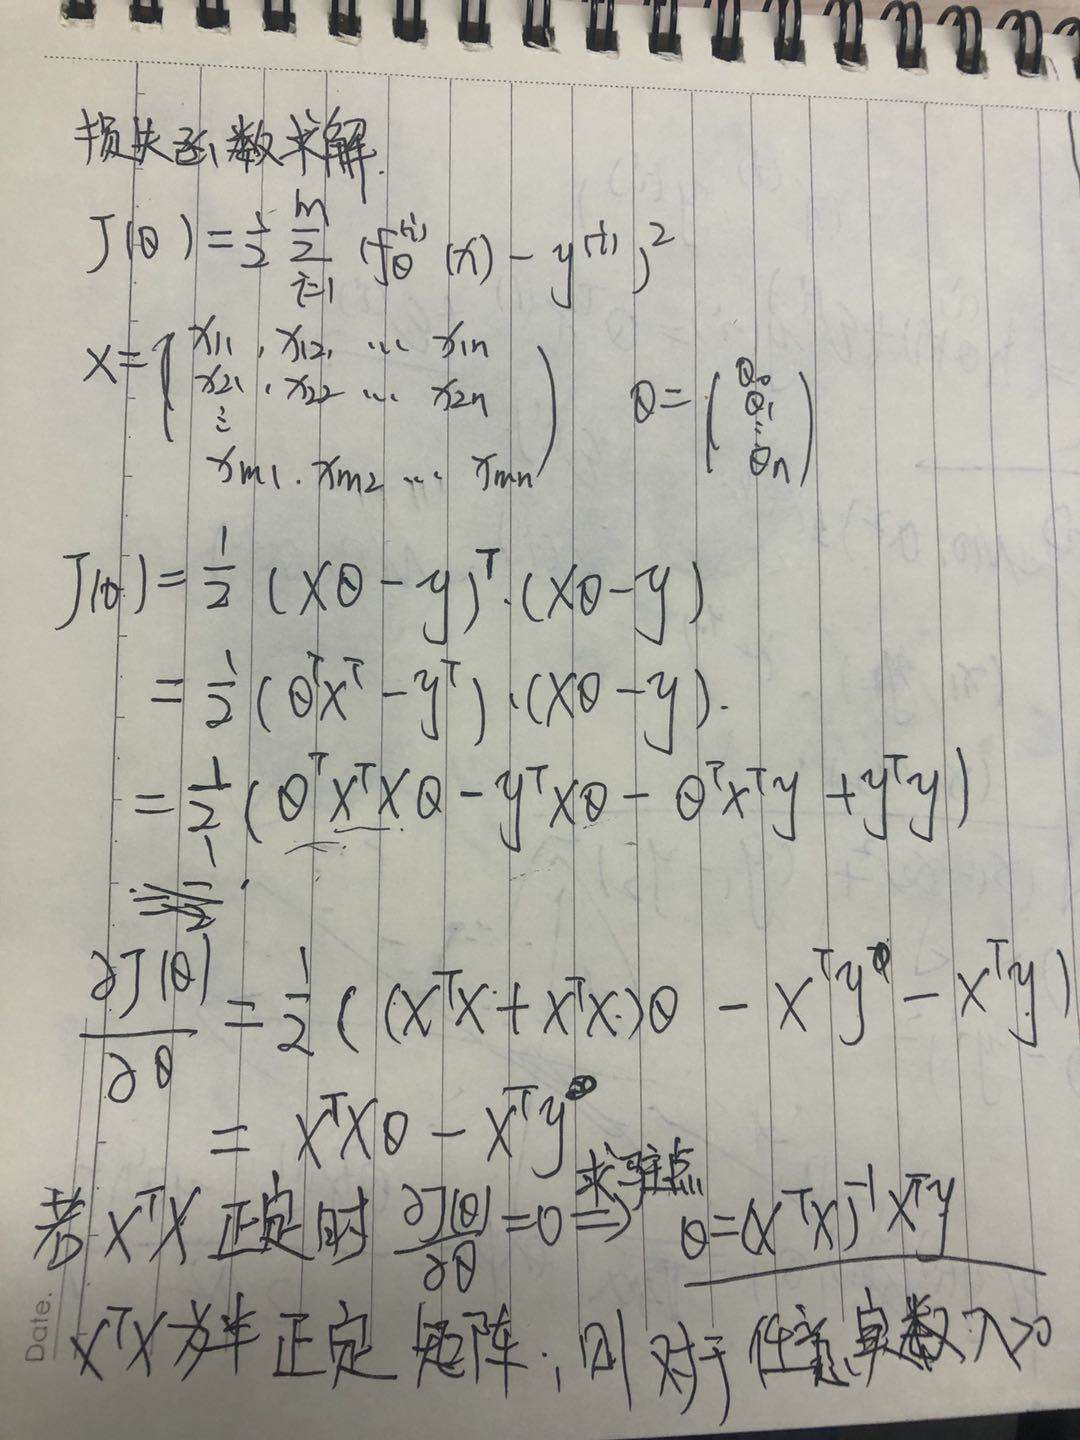 损失函数求解.
J(θ) = 1/2 Σ_{i=1}^{m} (f_θ^{(i)}(x) - y^{(i)})^2
X = ( x11, x12, ... x1n
x21, x22 ... x2n
⋮
xm1, xm2 ... xmn )
θ = ( θ0
θ1
⋮
θn )
J(θ) = 1/2 (Xθ - y)^T · (Xθ - y)
= 1/2 (θ^T X^T - y^T) · (Xθ - y).
= 1/2 (θ^T X^T X θ - y^T Xθ - θ^T X^T y + y^T y)
∂J(θ)/∂θ = 1/2 ((X^T X + X^T X)θ - X^T y - X^T y)
= X^T Xθ - X^T y
若 X^T X 正定时 ∂J(θ)/∂θ = 0 求驻点 ⇒ θ = (X^T X)^{-1} X^T y
Date.
X^T X 为半正定矩阵, 则对于任意实数 λ>0